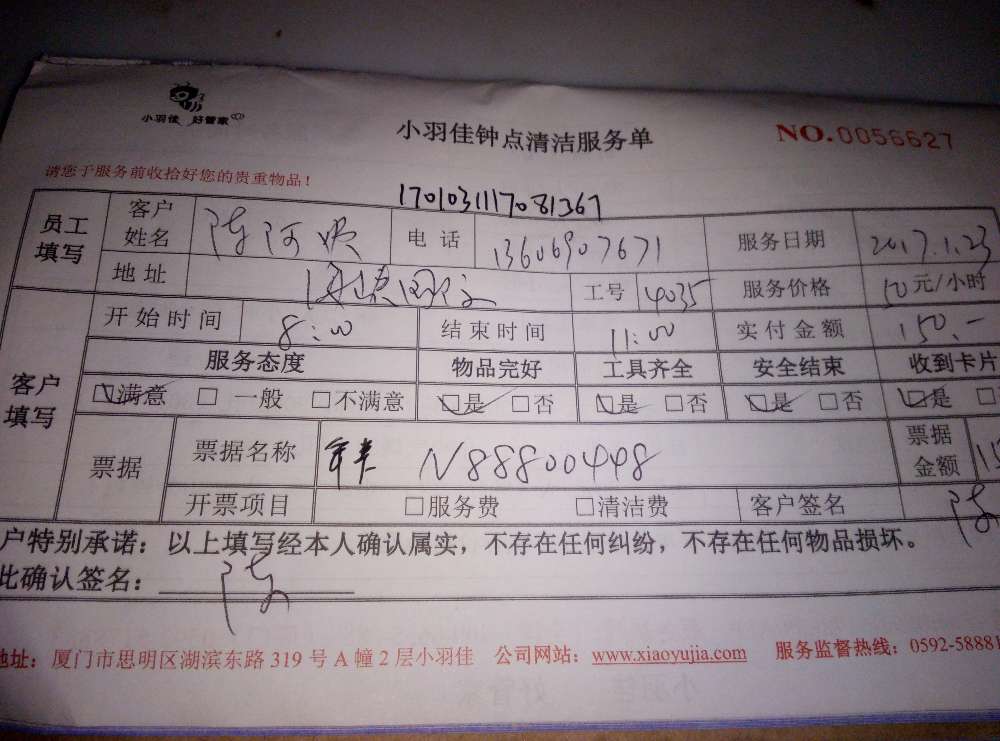 小羽佳 好管家
小羽佳钟点清洁服务单
NO.0056627
请您于服务前收拾好您的贵重物品！
1701031117081367
员工填写 客户姓名 陈阿 电话 13606907671 服务日期 2017.1.23
地址 工号 4035 服务价格 50元/小时
客户填写 开始时间 8:00 结束时间 11:00 实付金额 150.-
服务态度 物品完好 工具齐全 安全结束 收到卡片
☑满意 □一般 □不满意 ☑是 □否 ☑是 □否 ☑是 □否 ☑是 □
票据 票据名称 N88800448 票据金额
开票项目 □服务费 □清洁费 客户签名 陈
户特别承诺：以上填写经本人确认属实，不存在任何纠纷，不存在任何物品损坏。
此确认签名： 陈
地址：厦门市思明区湖滨东路 319 号 A 幢 2 层小羽佳 公司网站：www.xiaoyujia.com 服务监督热线：0592-58881